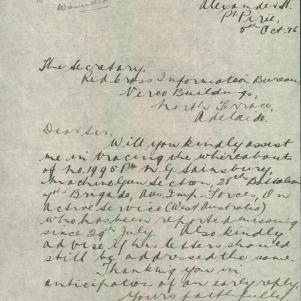 Wounded
Alexander St.
Pt Pirie,
5th Oct. 16
The Secretary,
Red Cross Information Bureau
Verco Buildings,
North Terrace,
Adelaide.
Dear Sir,
Will you kindly assist
me in tracing the whereabouts
of No. 1995 Pte N. G. Sainsbury,
Machine Gun Section, 28th Battalion
7th Brigade, Aus. Imp. Forces, On
Active Service (West Australia)
who has been reported missing
since 29th July Also kindly
advise if his letters should
still be addressed the same.
Thanking you in
anticipation of an early reply
Yours faithfully